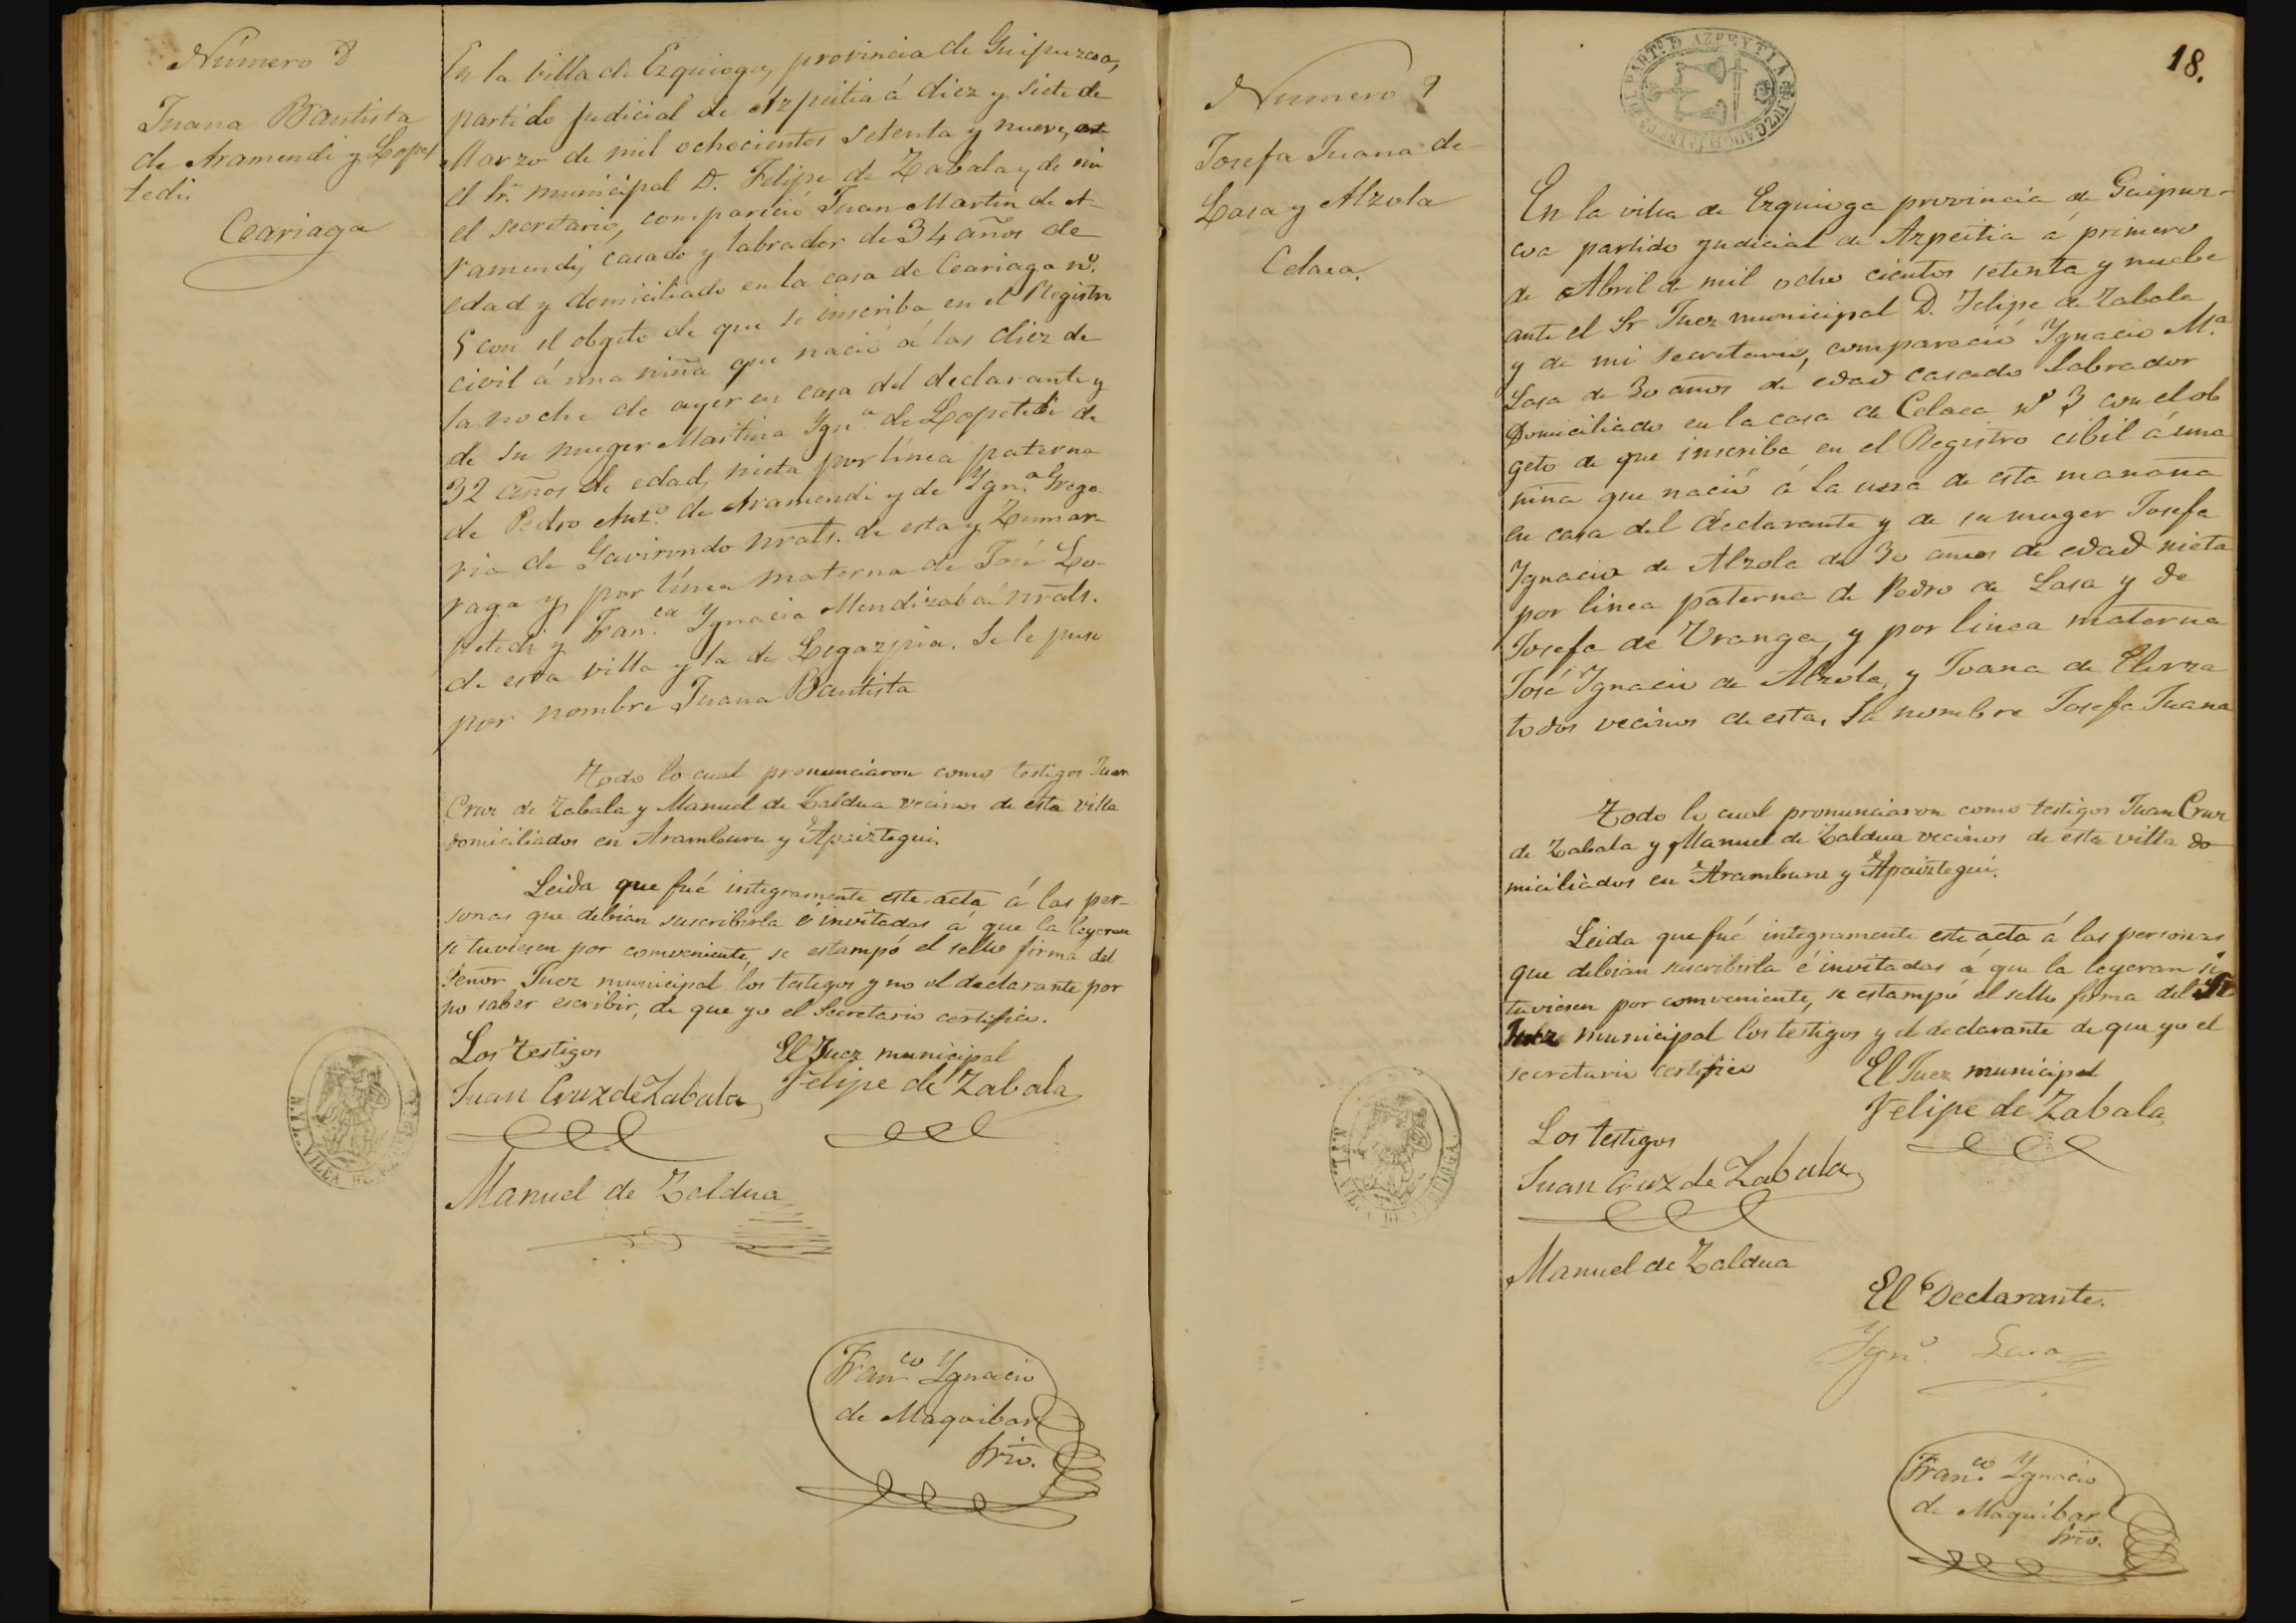 Número 8
Juana Bautista
de Aramendi y Lope
tedi.
Ceariaga
En la billa de Ezquioga, provincia de Guipuzcoa,
partido judicial de Azpeitia á diez y siete de
Marzo de mil ochocientos setenta y nueve, ante
el Sr. municipal D. Felipe de Zabala y de mi
el secretario, compareció Juan Martin de A-
ramendi, casado y labrador de 34 años de
edad y domiciliado en la casa de Ceariaga nº.
5 con el objeto de que se inscriba en el Registro
civil á una niña que nació á las diez de
la noche de ayer en casa del declarante y
de su muger Martina Ygn.ª de Lopetedi de
32 años de edad, nieta por línea paterna
de Pedro Ant.º de Aramendi y de Ygn.ª Grego
ria de Gavirondo nrals. de esta y Zumar-
raga y por línea materna de José Lo-
petedi y Fran.ca Ygnacia Mendizabal nrals.
de esta villa y la de Legazpia. Se le puso
por nombre Juana Bautista
Todo lo cual pronunciaron como testigos Juan
Cruz de Zabala y Manuel de Zaldua vecinos de esta villa
domiciliados en Aramburu y Apaiztegui.
Leida que fué integramente este acta á las per-
sonas que debian suscribirla é invitadas á que la leyeran
si tuviesen por comveniente, se estampó el sello firma del
Señor Juez municipal los testigos y no el declarante por
no saber escribir, de que yo el Secretario certifico.
Los testigos El Juez municipal
Juan Cruz de Zabala Felipe de Zabala
Manuel de Zaldua
Fran.co Ygnacio
de Maquibar
Srio.
18.
PART.º D AZPEYTIA
Número 9
Josefa Juana de
Lasa y Alzola
Celaea.
En la villa de Ezquioga provincia de Guipuz-
coa partido judicial de Azpeitia á primero
de Abril de mil ocho cientos setenta y nuebe
ante el Sr Juez municipal D. Felipe de Zabala
y de mi secretario, comparació Ygnacio M.ª
Lasa de 30 años de edad casado labrador
Domiciliado en la casa de Celaea nº 3 con el ob
geto de que inscriba en el Registro cibil á una
niña que nació á la una de esta manaña
en casa del declarante y de su muger Josefa
Ygnacia de Alzola de 30 años de edad nieta
por linea paterna de Pedro de Lasa y de
Josefa de Uranga, y por linea materna
José Ygnacio de Alzola, y Juana de Elorza
todos vecinos de esta. Su nombre Josefa Juana
Todo lo cual pronunciaron como testigos Juan Cruz
de Zabala y Manuel de Zaldua vecinos de esta villa do
miciliados en Aramburu y Apaiztegui.
Leida que fué integramente este acta á las personas
que debian suscribirla é invitadas á que la leyeran si
tuviesen por comveniente, se estampó el sello firma del Sr
Juez municipal los testigos y el declarante de que yo el
secretario certifico El Juez municipal
Felipe de Zabala
Los testigos
Juan Cruz de Zabala
Manuel de Zaldua
El Declarante.
Ygn.º Lasa
Fran.co Ygnacio
de Maquibar
Srio.